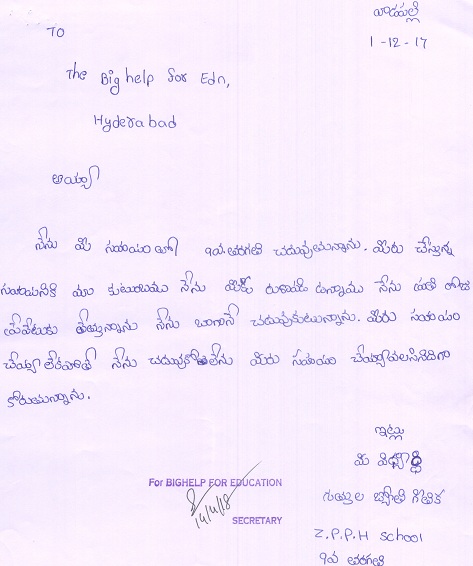 వాడపల్లి
TO
1-12-17
The Big help for Edn,
Hyderabad
అయ్యా
నేను మీ సహాయంతో 9వ తరగతి చదువుతున్నాను. మీరు చేస్తున్న
మా కుటుంబము నేను మీకు ఉన్నాము నేను
నేను బాగానే చదువుకుంటున్నాను. మీరు సహాయం
చేయ్యలేకపోతే నేను చదువుకోలేను మీరు సహాయం
కోరుతున్నాను.
ఇట్లు
మీ విద్యార్థి
జ్యోతి గీతిక
Z.P.P.H school
9వ తరగతి
For BIGHELP FOR EDUCATION
19/4/18
SECRETARY